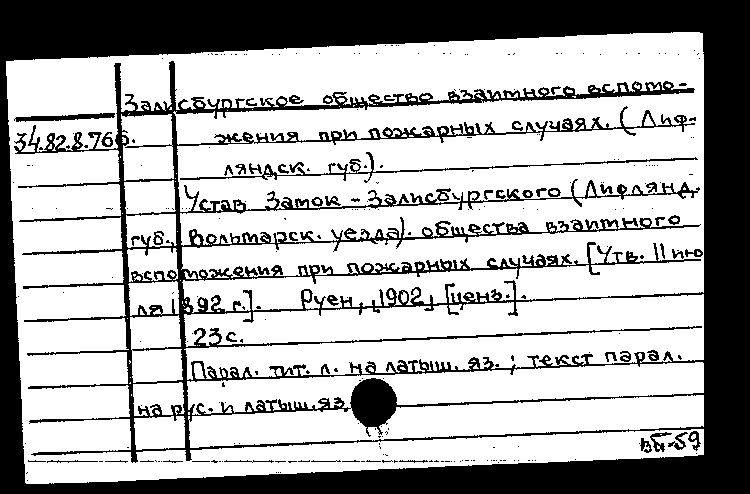 Залисбургское общество взаитного вспомо-
34.82.8.766. жения при пожарных случаях. (Лиф-
ляндск. губ.).
Устав Замок-Залисбургского (Лифлянд.
губ., Вольмарск. уезда). общества взаимного
вспоможения при пожарных случаях. [Утв. 11 ию
ля 1892 г.]. Руен, [1902] [ценз.].
23 с.
Парал. тит. л. на латыш. яз.; текст парал.
на рус. и латыш. яз.
вБ-59